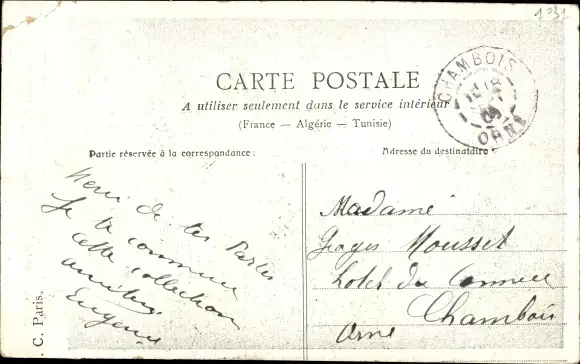 CARTE POSTALE
A utiliser seulement dans le service intérieur
(France — Algérie — Tunisie)
Partie réservée à la correspondance :
Adresse du destinataire
CHAMBOIS
ORNE
Merci de tes Cartes
Je te commence
cette collection
Eugene
Madame
Georges Mousset
hotel du
Chambois
Orne
. C. Paris.